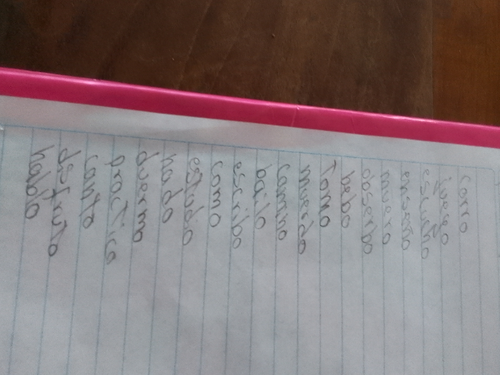 corro
juego
escucho
enseño
muevo
obserbo
bebo
Tomo
muerdo
camino
bailo
escribo
como
estudio
nado
duermo
practico
canto
disfruto
hablo